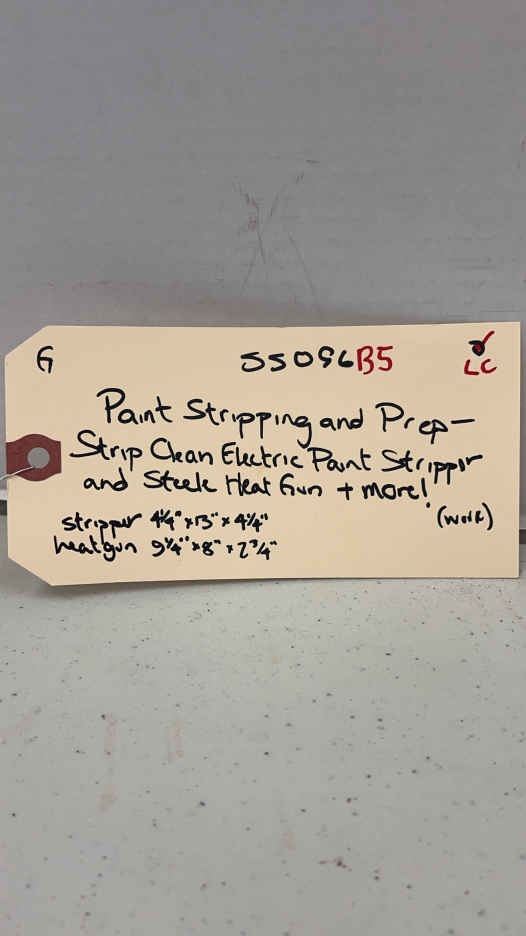 G 55096B5 LC
Paint Stripping and Prep-
Strip Clean Electric Paint Stripper
and Steele Heat Gun + more!
(work)
stripper 4¼" x 13" x 4¼"
heatgun 9¼" x 8" x 2¾"